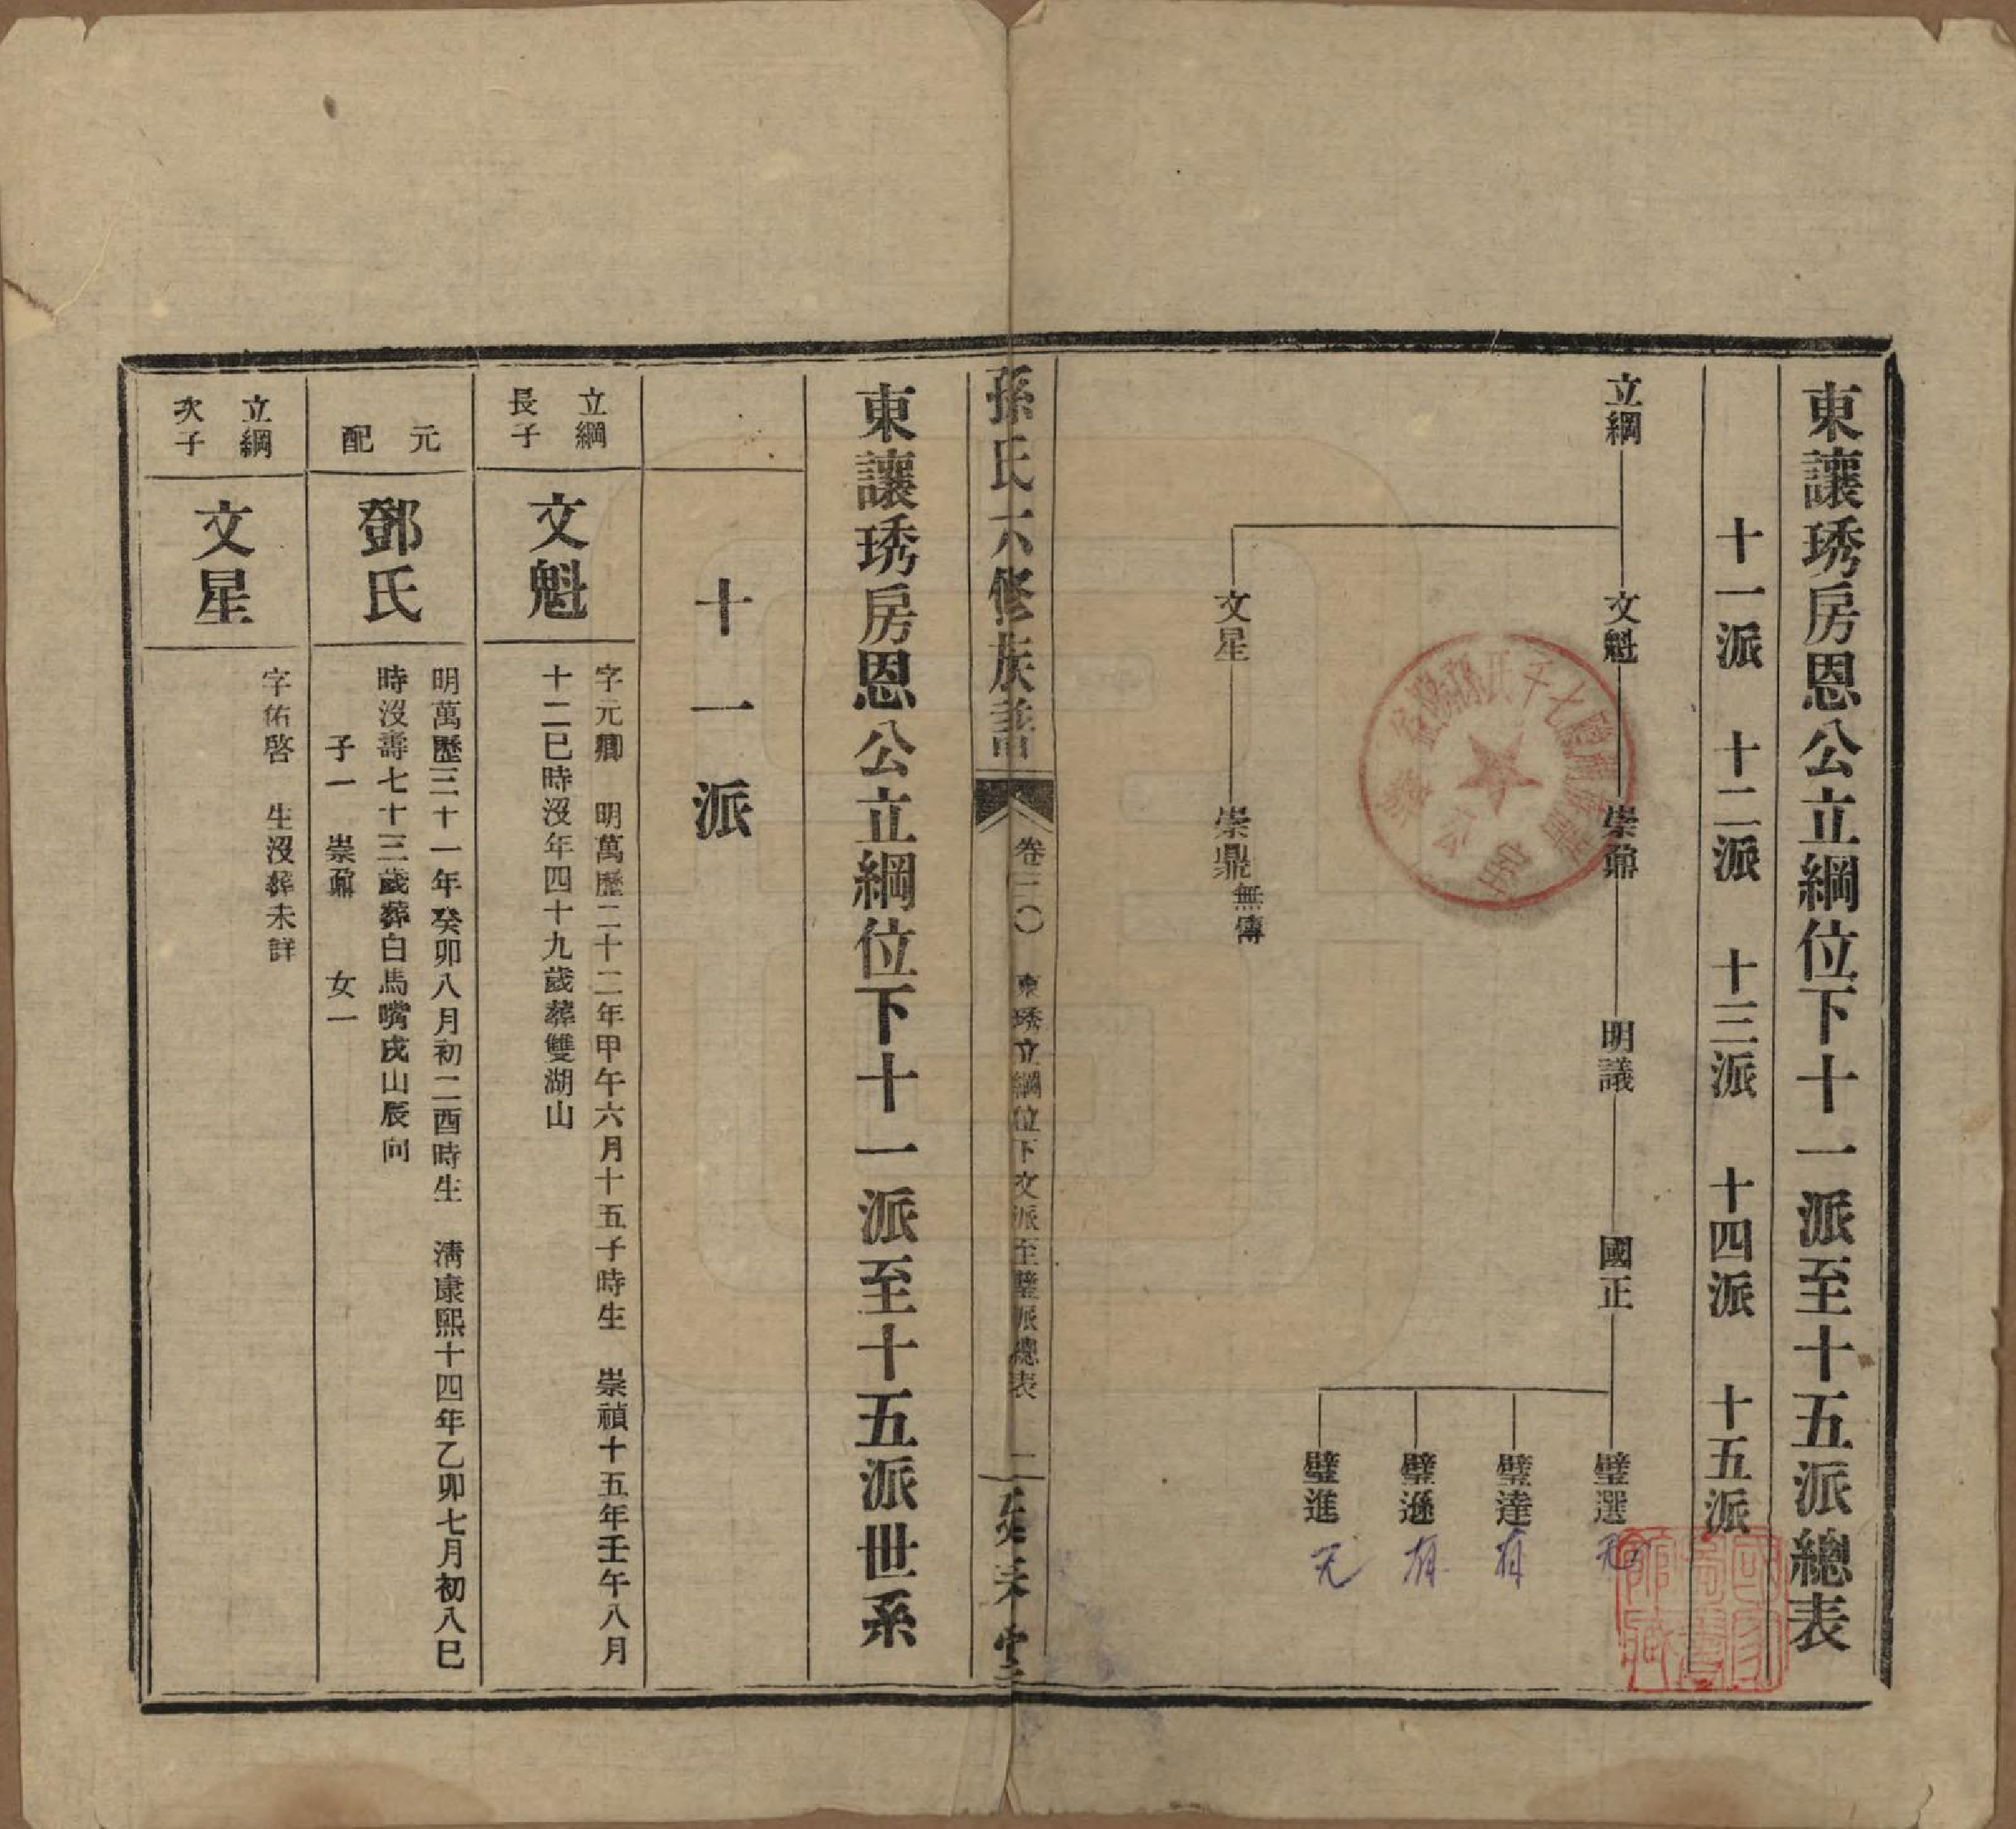 東讓琇房恩公立綱位下十一派至十五派總表
十一派 十二派 十三派 十四派 十五派
立綱 文魁 崇鼐 明議 國正 璧選 无
璧達 有
璧遜 有
璧進 无
文星 崇鼎 無傳
孫氏六修族譜 卷三〇 東琇立綱位下文派至璧派總表 一 堂
東讓琇房恩公立綱位下十一派至十五派世系
十一派
立綱
長子
文魁
字元卿 明萬歷二十二年甲午六月十五子時生 崇禎十五年壬午八月
十二巳時沒年四十九歲葬雙湖山
元配
鄧氏
明萬歷三十一年癸卯八月初二酉時生 清康熙十四年乙卯七月初八巳
時沒壽七十三歲葬白馬嘴戌山辰向
子一 崇鼐 女一
立綱
次子
文星
字佑啓 生沒葬未詳